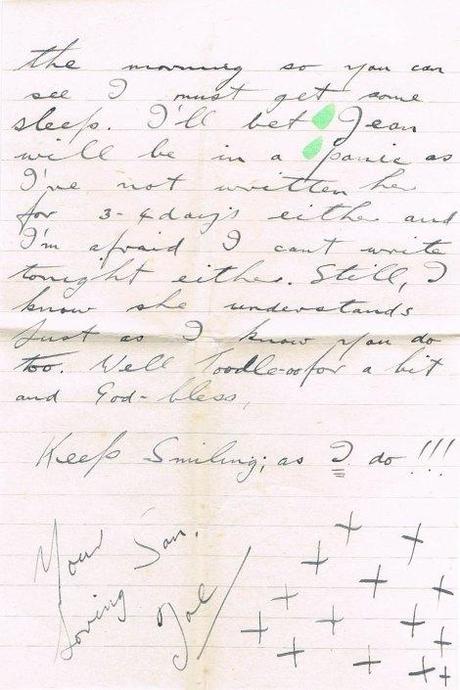 the morning so you can
see I must get some
sleep. I'll bet Jean
will be in a panic as
I've not written her
for 3-4 days either and
I'm afraid I can't write
tonight either. Still, I
know she understands
just as I know you do
too. Well Toodle-oo for a bit
and God-bless,
Keep Smiling; as I do!!!
Your
loving Son,